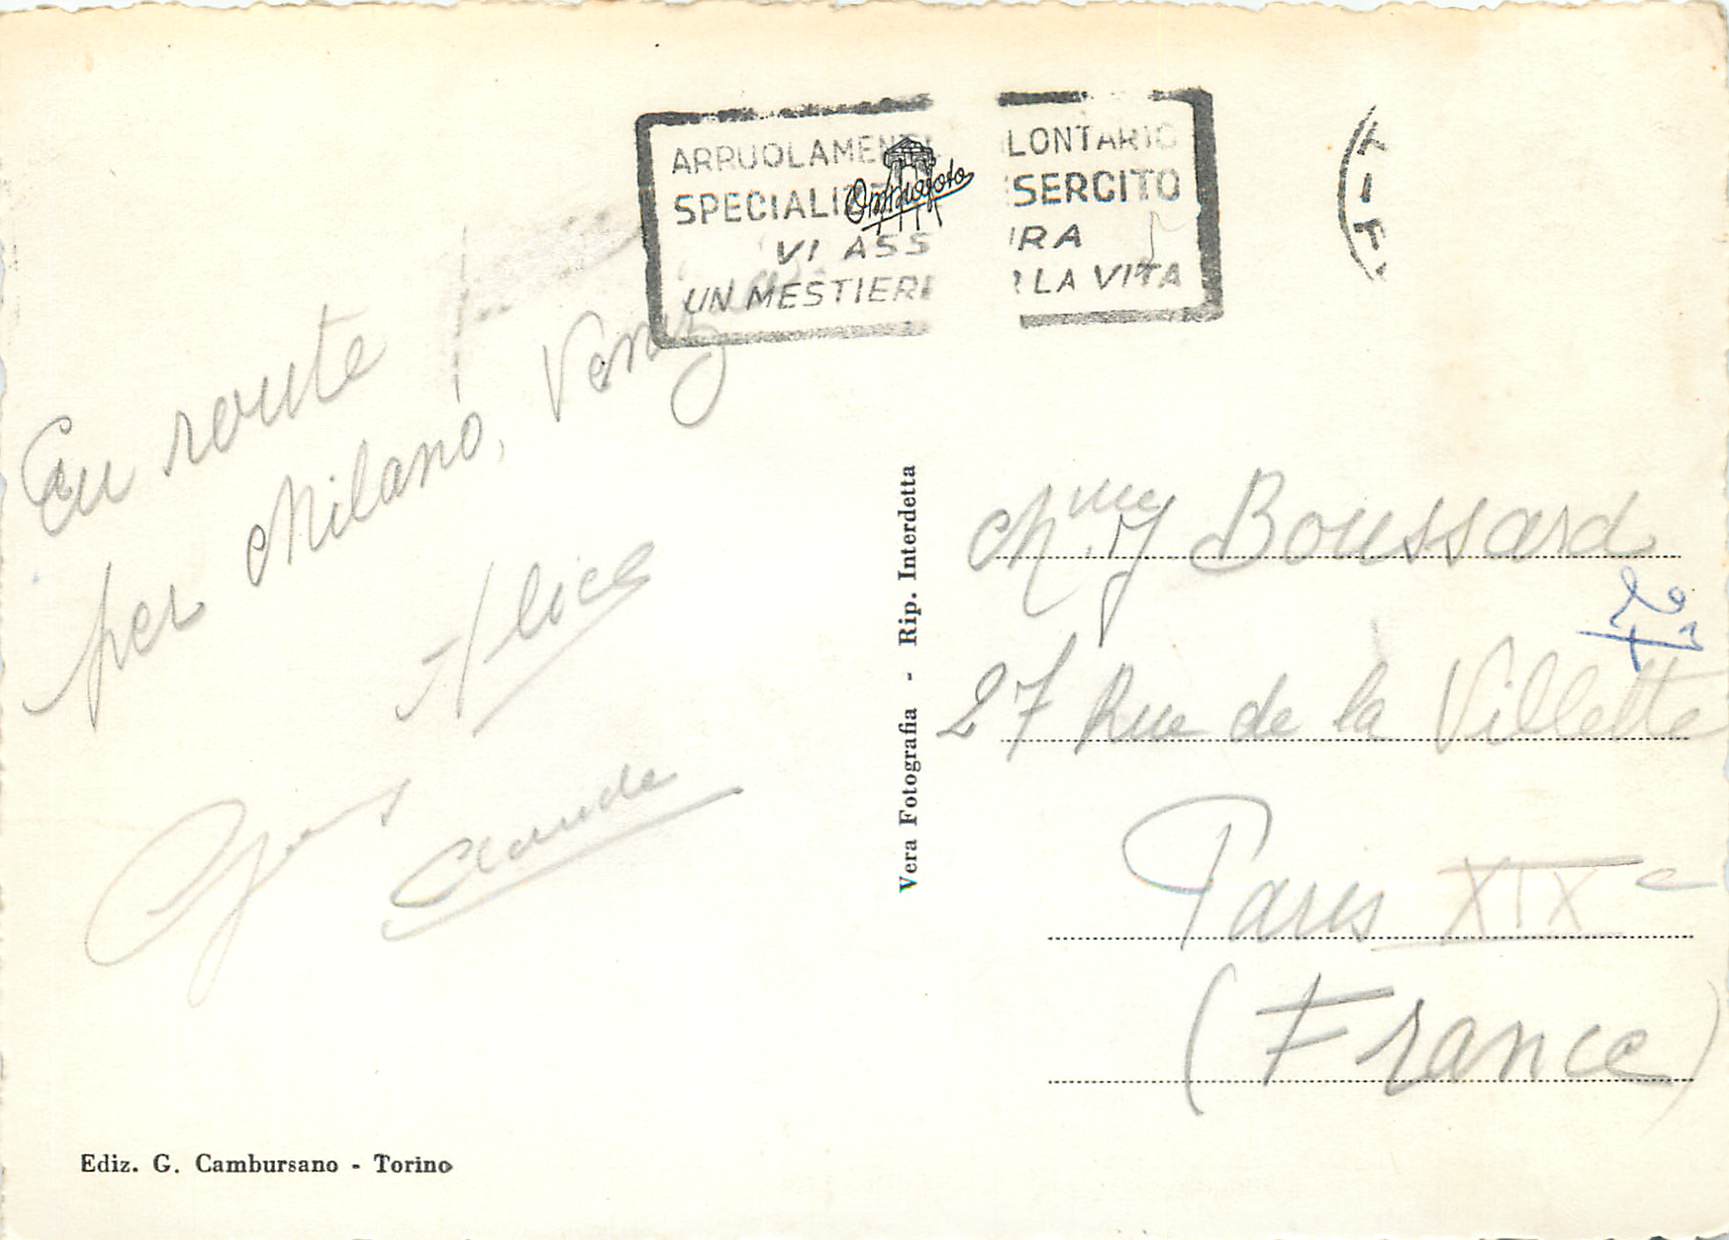 ARRUOLAMEN LONTARIO
SPECIALIZ SERCITO
VI ASS RA
UN MESTIERE LA VITA
Omniafoto
En route
per Milano,
Alice
Claude
Vera Fotografia - Rip. Interdetta
Mme J Boussard
27
27 Rue de la Villette
Paris XIXe
(France)
Ediz. G. Cambursano - Torino